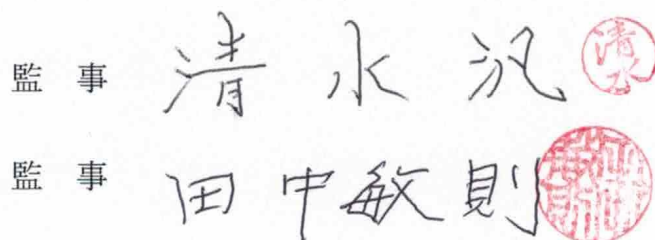 監事 清水 汎 清水
監事 田中敏則